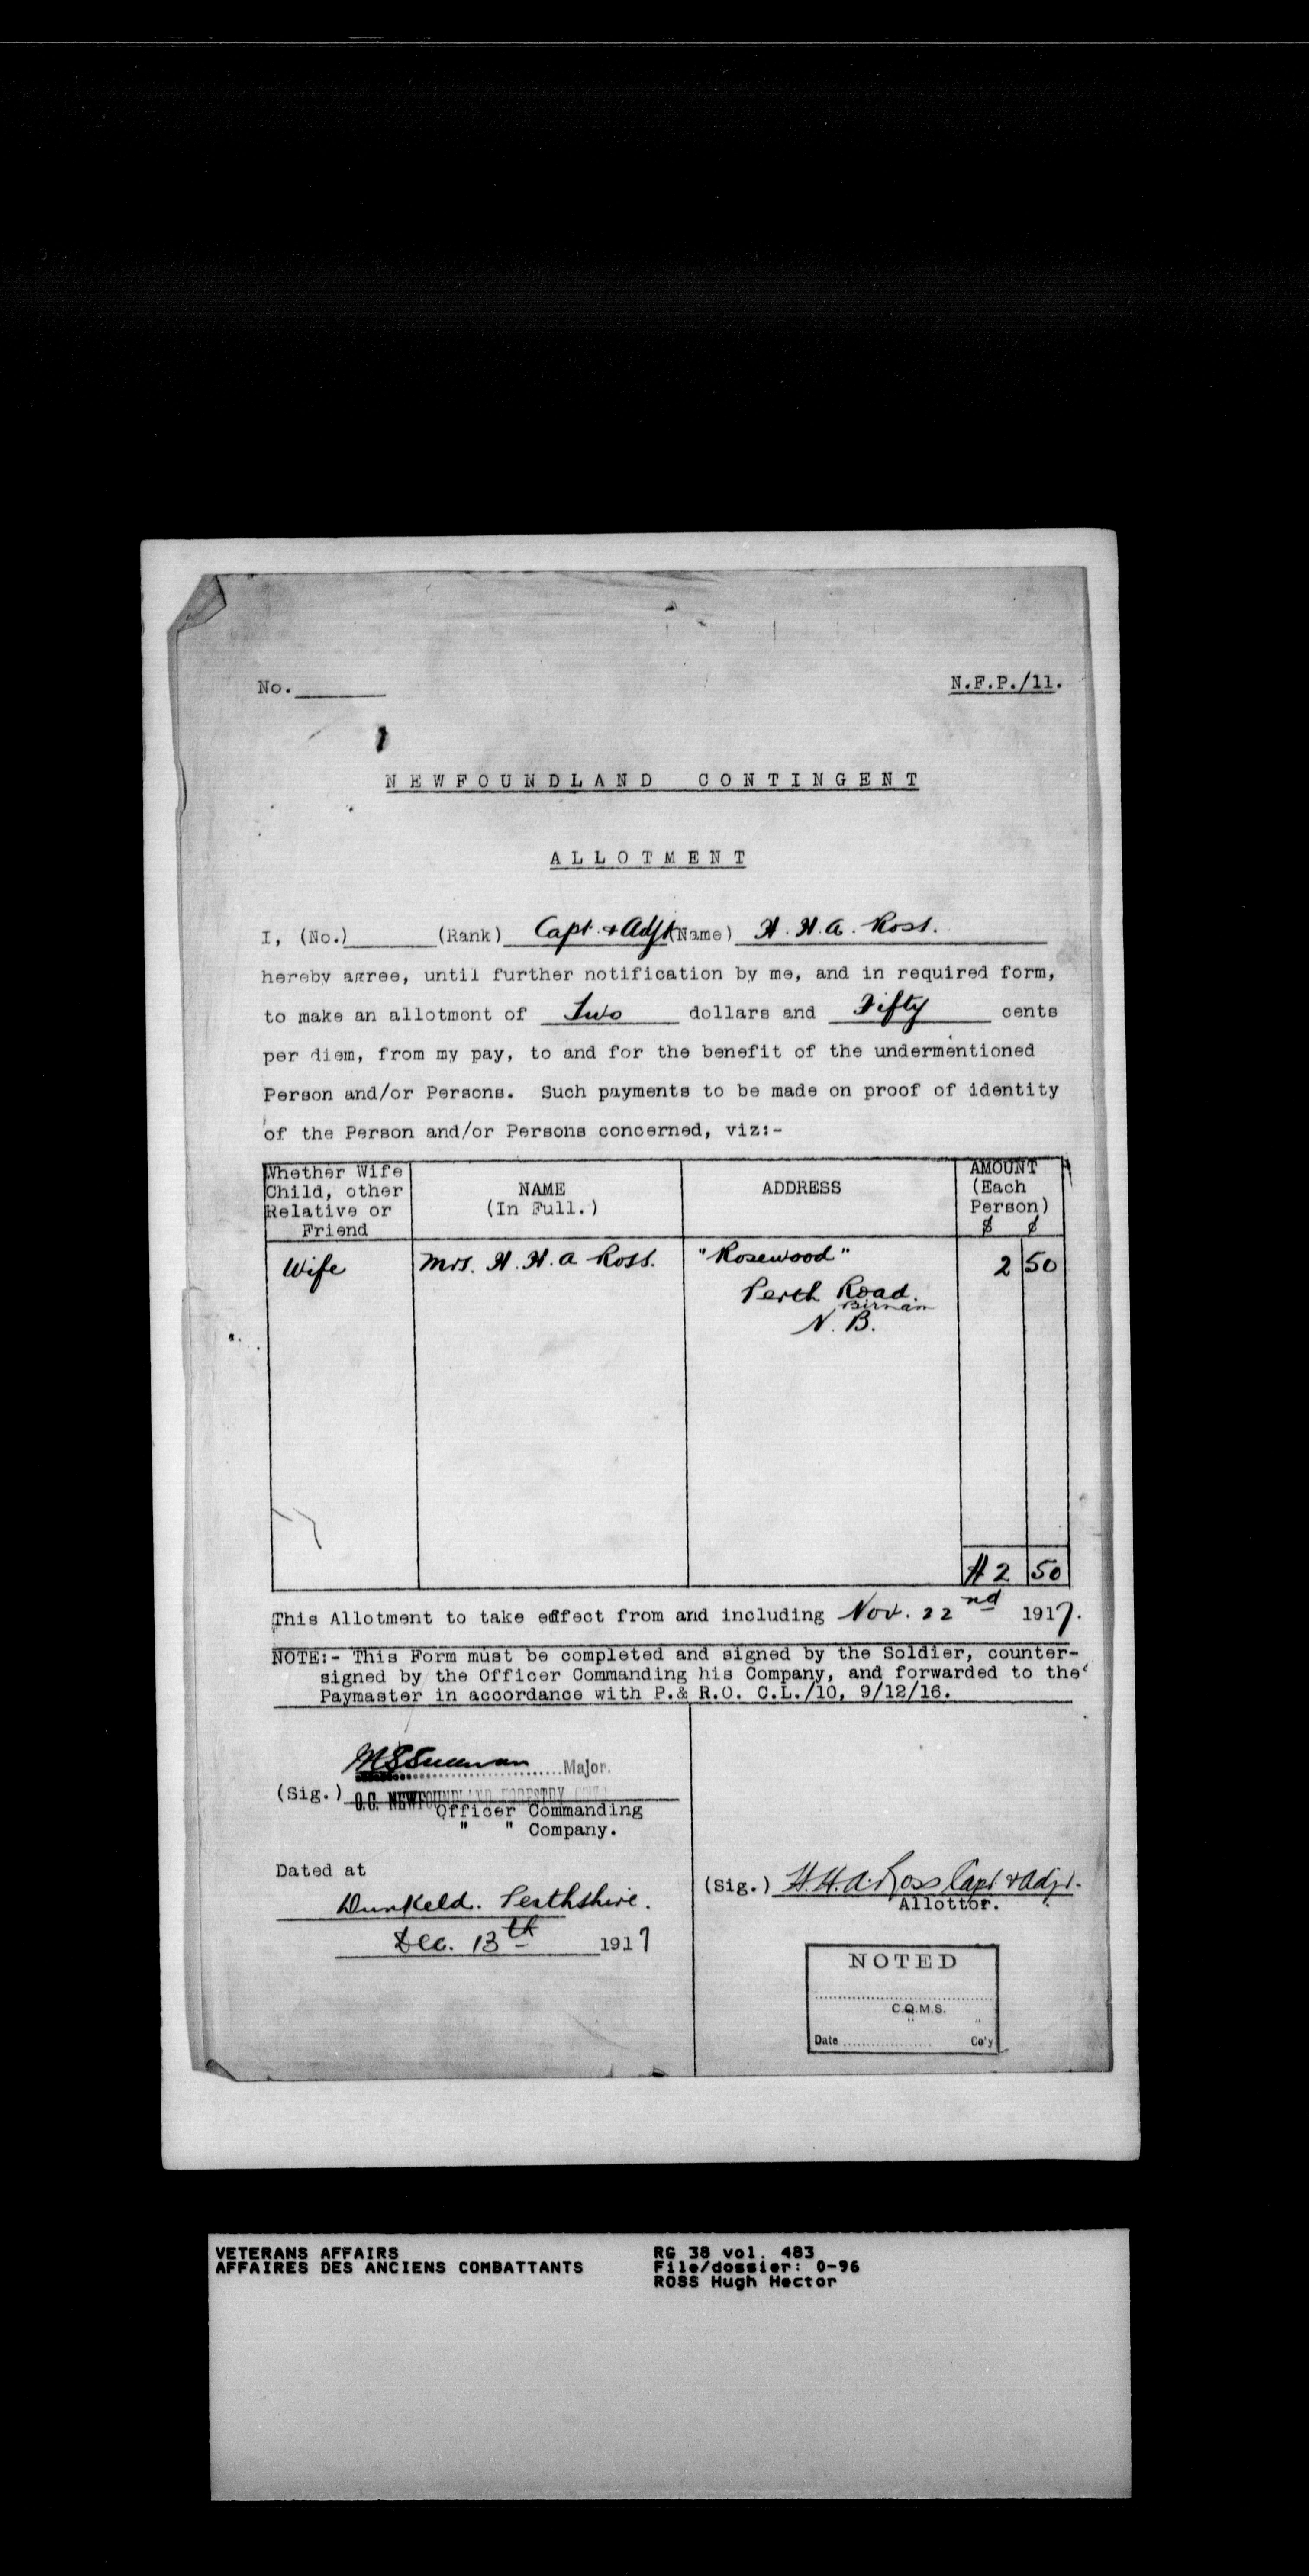 No.
N.F.P./11.
NEWFOUNDLAND CONTINGENT
ALLOTMENT
I, (No.) (Rank) Capt. & Adjt (Name) H. H. A. Ross.
hereby agree, until further notification by me, and in required form,
to make an allotment of Two dollars and Fifty cents
per diem, from my pay, to and for the benefit of the undermentioned
Person and/or Persons. Such payments to be made on proof of identity
of the Person and/or Persons concerned, viz:-
Whether Wife
Child, other
Relative or
Friend
NAME
(In Full.)
ADDRESS
AMOUNT
(Each
Person)
$ ¢
Wife Mrs. H. H. A Ross. "Rosewood" 2 50
Perth Road.
Birnam
N. B.
$2 50
This Allotment to take effect from and including Nov. 22nd 1917.
NOTE:- This Form must be completed and signed by the Soldier, counter-
signed by the Officer Commanding his Company, and forwarded to the
Paymaster in accordance with P.& R.O. C.L./10, 9/12/16.
Major.
(Sig.) O.C. NEWFOUNDLAND FORESTRY
Officer Commanding
" " Company.
Dated at
Dunkeld. Perthshire.
Dec. 13th 1917
(Sig.) H.H.A. Ross Capt. & Adjt.
Allottor.
NOTED
C.Q.M.S.
"
Date Co'y
VETERANS AFFAIRS
AFFAIRES DES ANCIENS COMBATTANTS
RG 38 vol. 483
File/dossier: 0-96
ROSS Hugh Hector